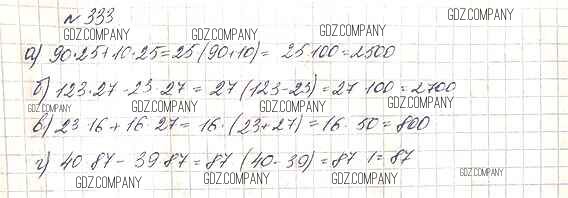 № 333
GDZ.COMPANY GDZ.COMPANY GDZ.COMPANY
а) 90·25+10·25=25(90+10)= 25·100=2500
GDZ.COMPANY GDZ.COMPANY GDZ.COMPANY
б) 123·27-23·27=27(123-23)=27·100=2700
GDZ.COMPANY GDZ.COMPANY GDZ.COMPANY GDZ.COMPANY
в) 23·16+16·27=16·(23+27)=16·50=800
г) 40 87-39 87=87 (40-39)=87 1=87
GDZ.COMPANY GDZ.COMPANY GDZ.COMPANY GDZ.COMPANY